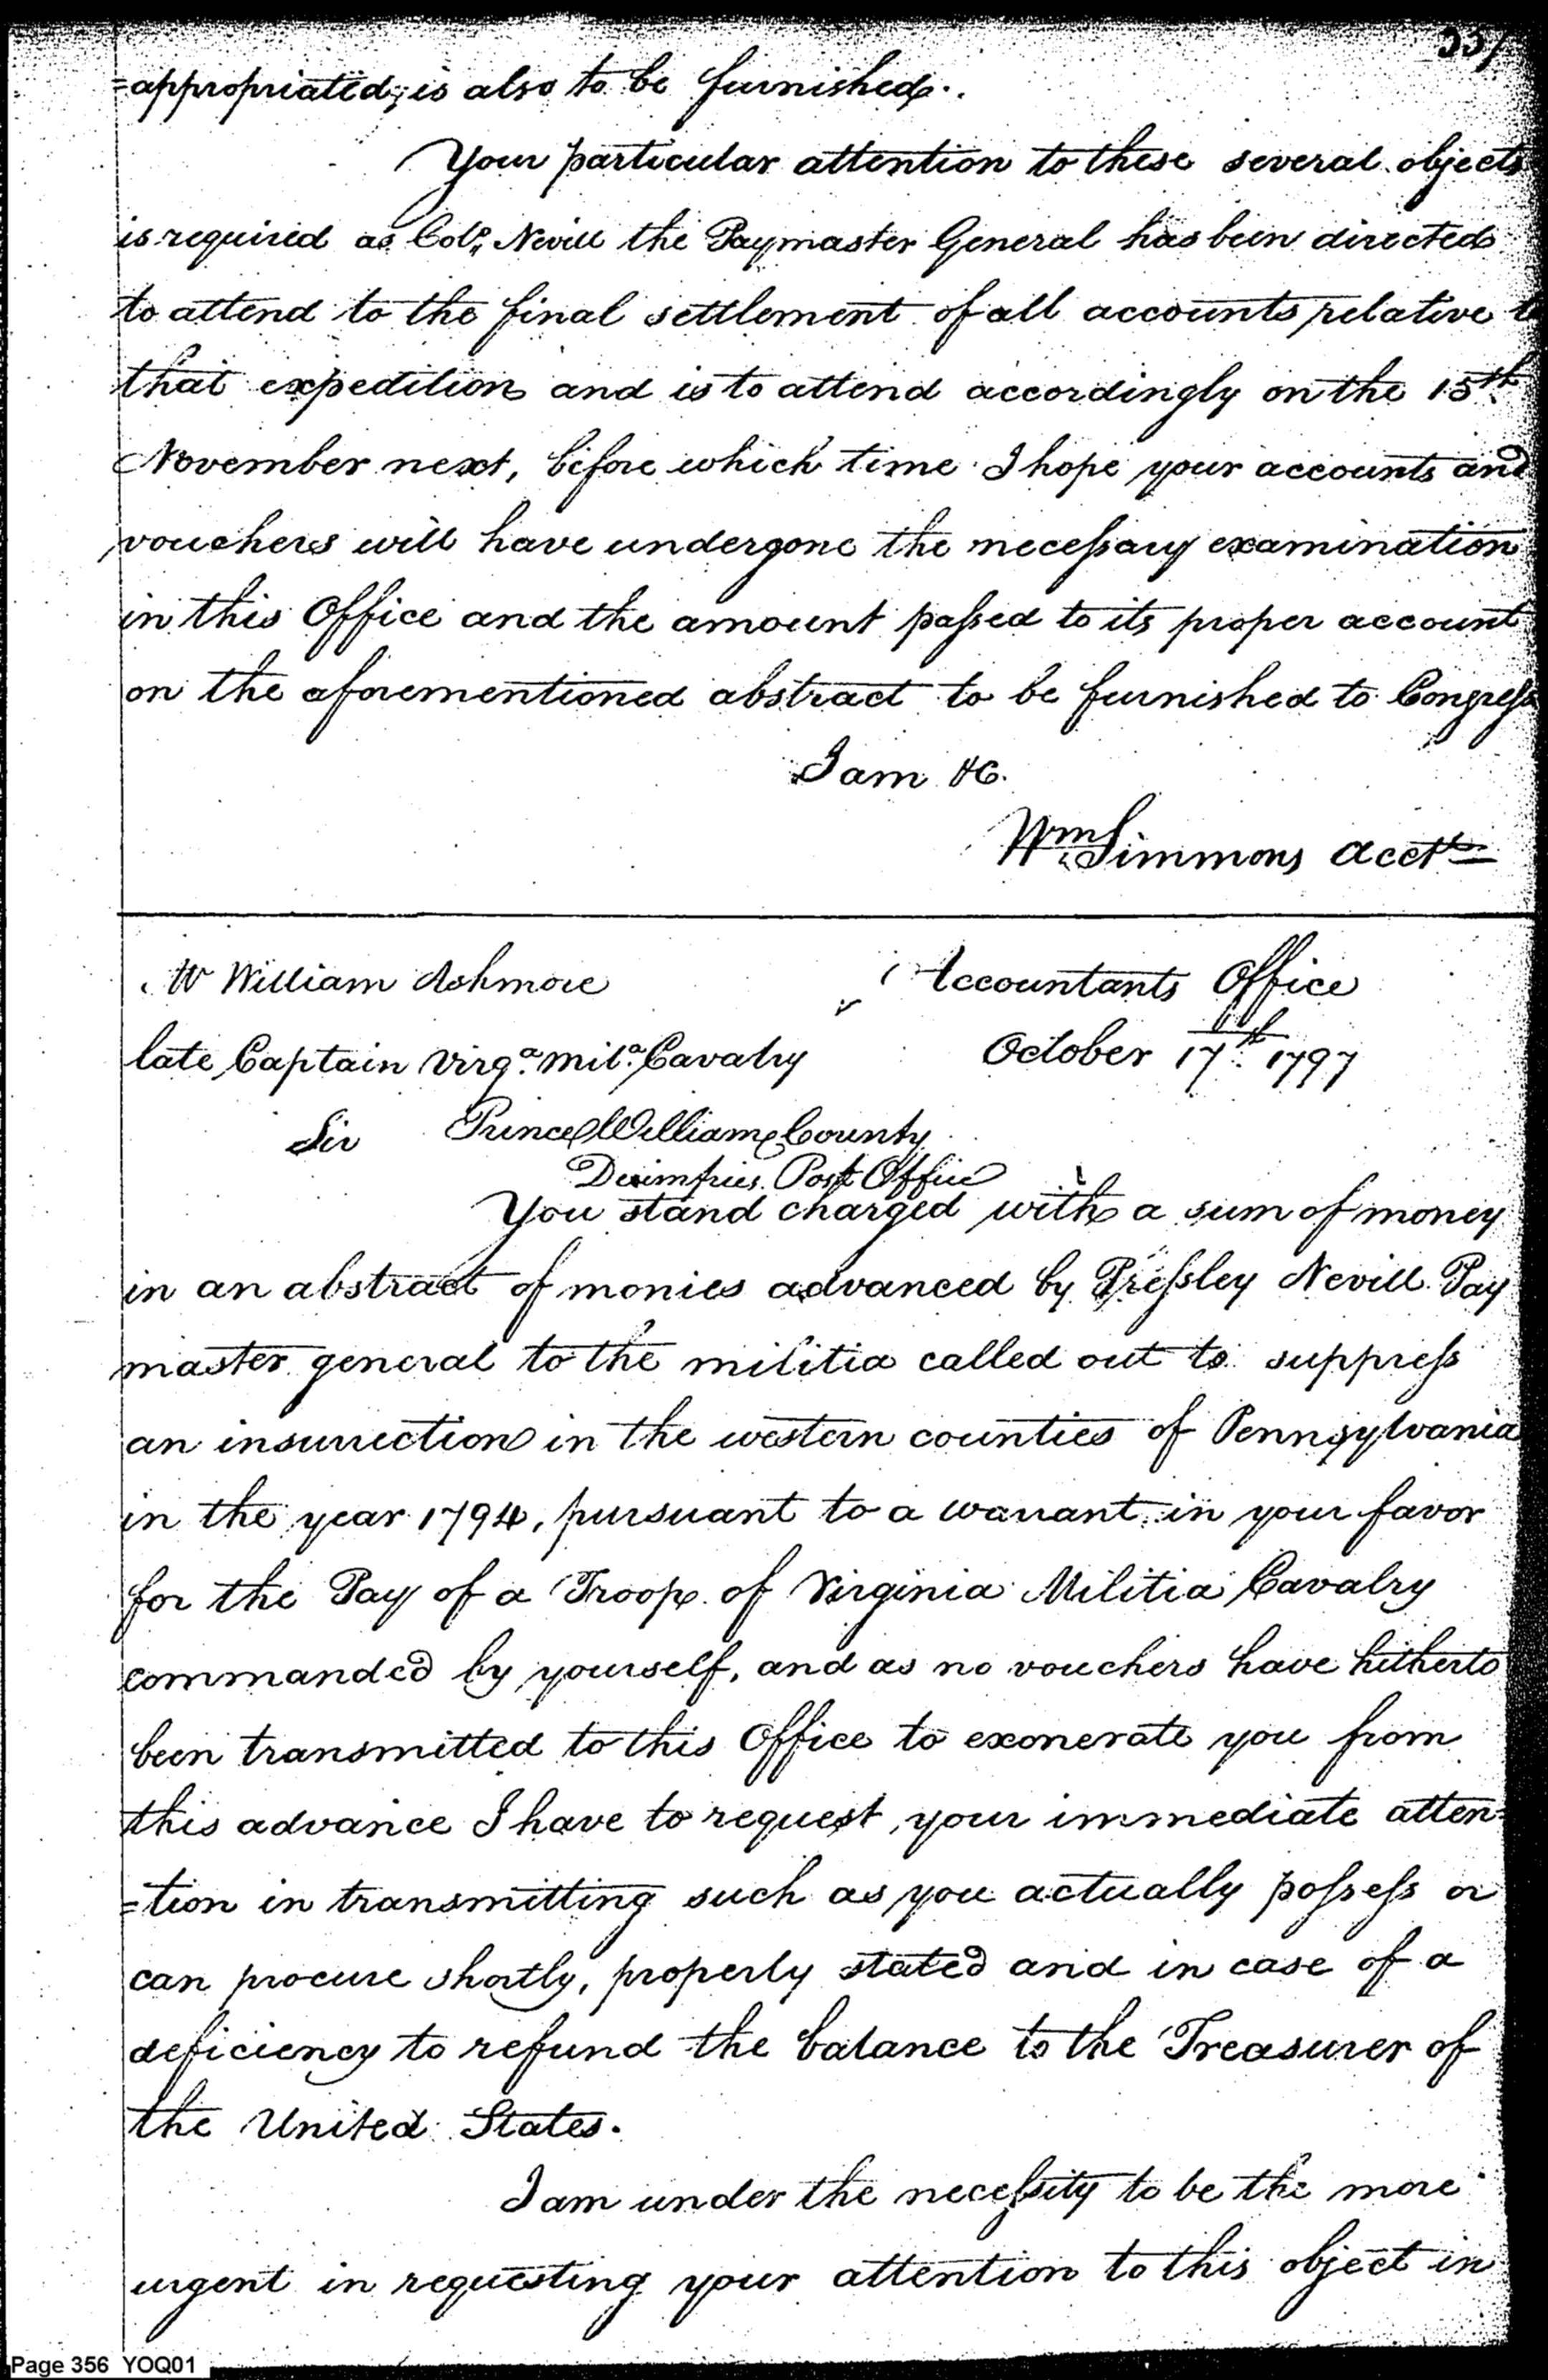 337
=appropriated, is also to be furnished.
Your particular attention to these several objects
is required as Colo. Nevill the Paymaster General has been directed
to attend to the final settlement of all accounts relative to
that expedition and is to attend accordingly on the 15th
November next, before which time I hope your accounts and
vouchers will have undergone the necessary examination
in this Office and the amount passed to its proper account
on the aforementioned abstract to be furnished to Congress
I am &c.
Wm Simmons acctt
Mr William Ashmore
Accountants Office
late Captain Virga. mila. Cavalry
October 17th. 1797
Sir Prince William County
Dumfries Post Office
You stand charged with a sum of money
in an abstract of monies advanced by Pressley Nevill Pay
master general to the militia called out to suppress
an insurrection in the western counties of Pennsylvania
in the year 1794, pursuant to a warrant in your favor
for the Pay of a Troop of Virginia Militia Cavalry
commanded by yourself, and as no vouchers have hitherto
been transmitted to this Office to exonerate you from
this advance I have to request your immediate atten=
=tion in transmitting such as you actually possess or
can procure shortly, properly stated and in case of a
deficiency to refund the balance to the Treasurer of
the United States.
I am under the necessity to be the more
urgent in requesting your attention to this object in
Page 356 YOQ01